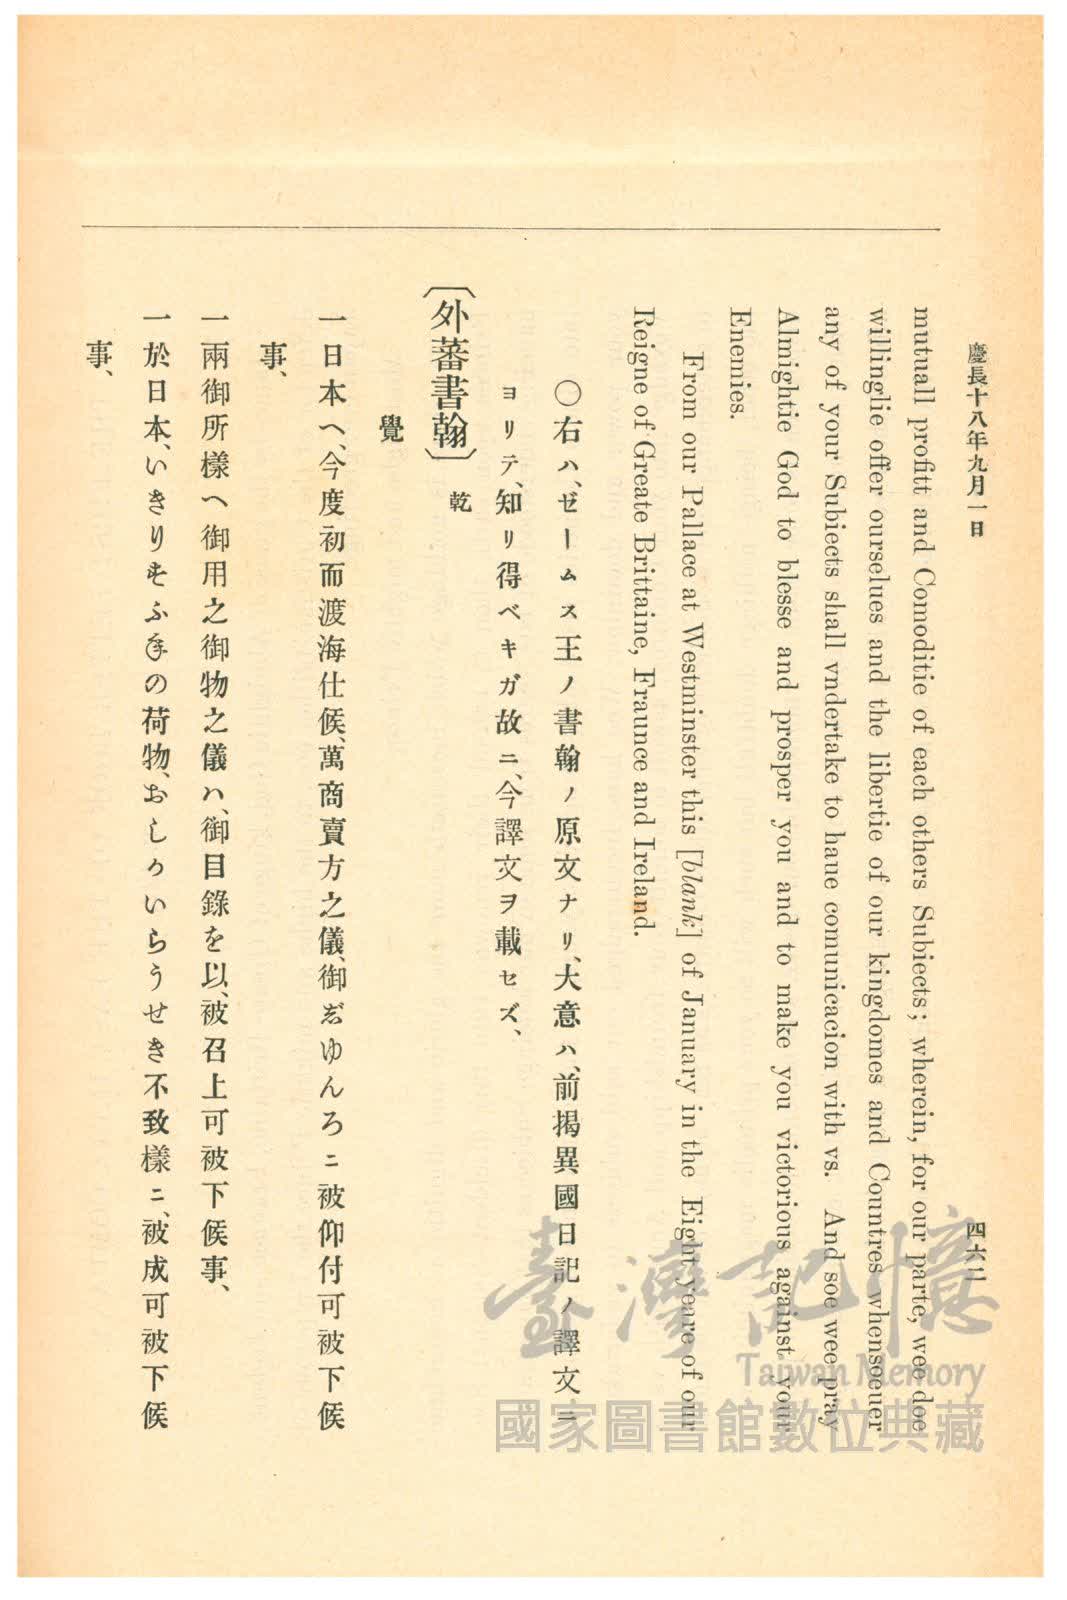 慶長十八年九月一日
四六二
mutuall profitt and Comoditie of each others Subiects; wherein, for our parte, wee doe
willinglie offer ourselues and the libertie of our kingdomes and Countres whensoeuer
any of your Subiects shall vndertake to haue comunicacion with vs. And soe wee pray
Almightie God to blesse and prosper you and to make you victorious against your
Enemies.
From our Pallace at Westminster this [blank] of January in the Eight yeare of our
Reigne of Greate Brittaine, Fraunce and Ireland.
〇右ハ、ゼームス王ノ書翰ノ原文ナリ、大意ハ、前揭異國日記ノ譯文ニ
ヨリテ、知リ得ベキガ故ニ、今譯文ヲ載セズ、
〔外蕃書翰〕乾
覺
一日本へ、今度初而渡海仕候、萬商賣方之儀、御ぢゆんろニ被仰付可被下候
事、
一兩御所樣へ御用之御物之儀ハ、御目錄を以、被召上可被下候事、
一於日本、いきりすふ年の荷物、おしかいらうせき不致樣ニ、被成可被下候
事、
臺灣記憶
Taiwan Memory
國家圖書館數位典藏